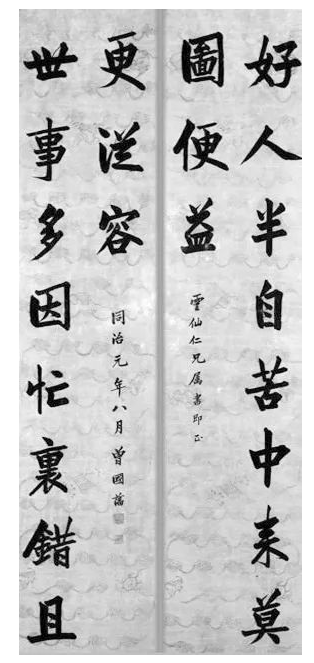 好人半自苦中来莫
圖便益
雲仙仁兄属書即正
更從容
世事多因忙裏錯且
同治元年八月曾國藩